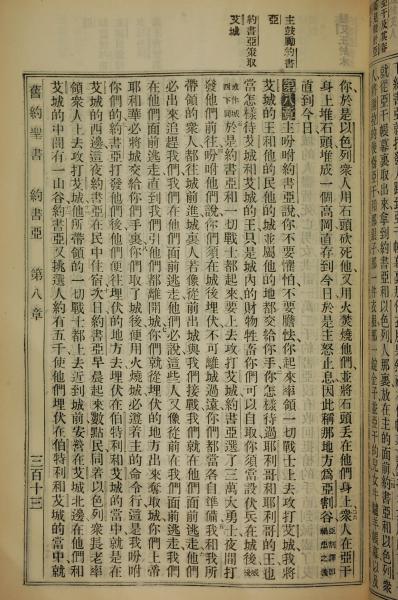 主鼓勵約書
亞
約書亞策取
艾城
你於是以色列衆人用石頭砍死他又用火焚燒他們並將石頭丟在他們身上衆人在亞干
身上堆石頭堆成一個高岡直存到今日於是主怒止息因此稱那地方爲亞割谷
直到今日、
第八章主吩咐約書亞說你不要懼怕不要膽怯你起來率領一切戰士上去攻打艾城我將
艾城的王和他的民他的城並屬他的地都交給你手你怎樣待過耶利哥和耶利哥的王也
當怎樣待艾城和艾城的王只是城內的財物牲畜你們可以自取你須當設伏兵在城後
於是約書亞和一切戰士都起來要上去攻打艾城約書亞選了三萬大勇士夜間打
發他們前往吩咐他們說你們須在城後埋伏不可離城過遠你們都當各自準備我和我所
帶領的衆人都往城前進城裏人若像從前出城與我們接戰我們就在他們面前逃走他們
必出來追趕我們我們在他們面前逃走他們必說這些人又像從前在我們面前逃走我們
在他們面前逃走直到我們引他們都離開城你們就從埋伏的地方出來奪取城你們上帝
耶和華必將城交給你們手裏你們取了城後便用火燒城必遵着主的命令行這是我吩咐
你們的約書亞打發他們後他們便往埋伏的地方去埋伏在伯特利和艾城的當中就是在
艾城的西邊這夜約書亞在民中住宿次日約書亞早晨起來數點民同着以色列衆長老率
領衆人上去攻打艾城他所帶領的一切戰士都上去近到城前安營在艾城北邊在他們和
艾城的中間有一山谷約書亞又挑選人約有五千使他們埋伏在伯特利和艾城的當中就
舊約聖書 約書亞 第八章 三百十三